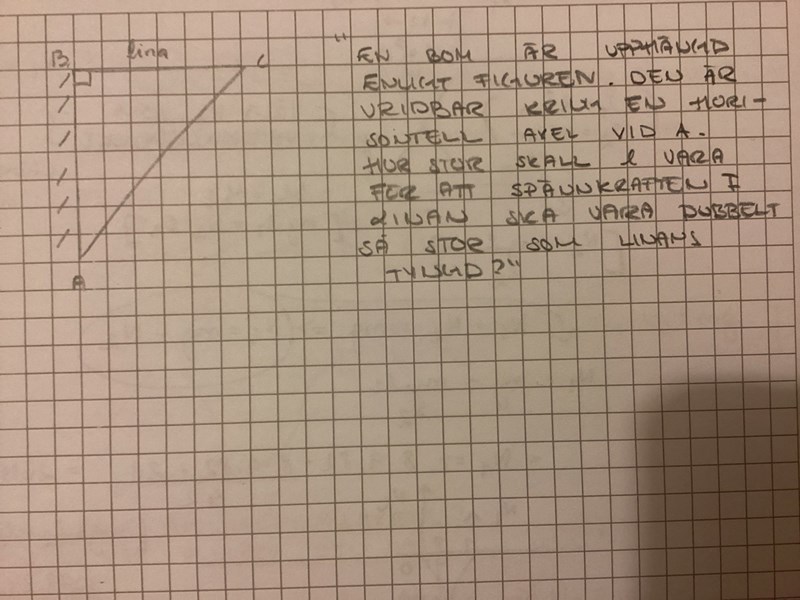 B lina C
"EN BOM ÄR UPPHÄNGD
ENLIGT FIGUREN. DEN ÄR
VRIDBAR KRING EN HORI-
SONTELL AXEL VID A.
HUR STOR SKALL l VARA
FÖR ATT SPÄNNKRAFTEN I
LINAN SKA VARA DUBBELT
SÅ STOR SOM LINANS
TYNGD?"
A